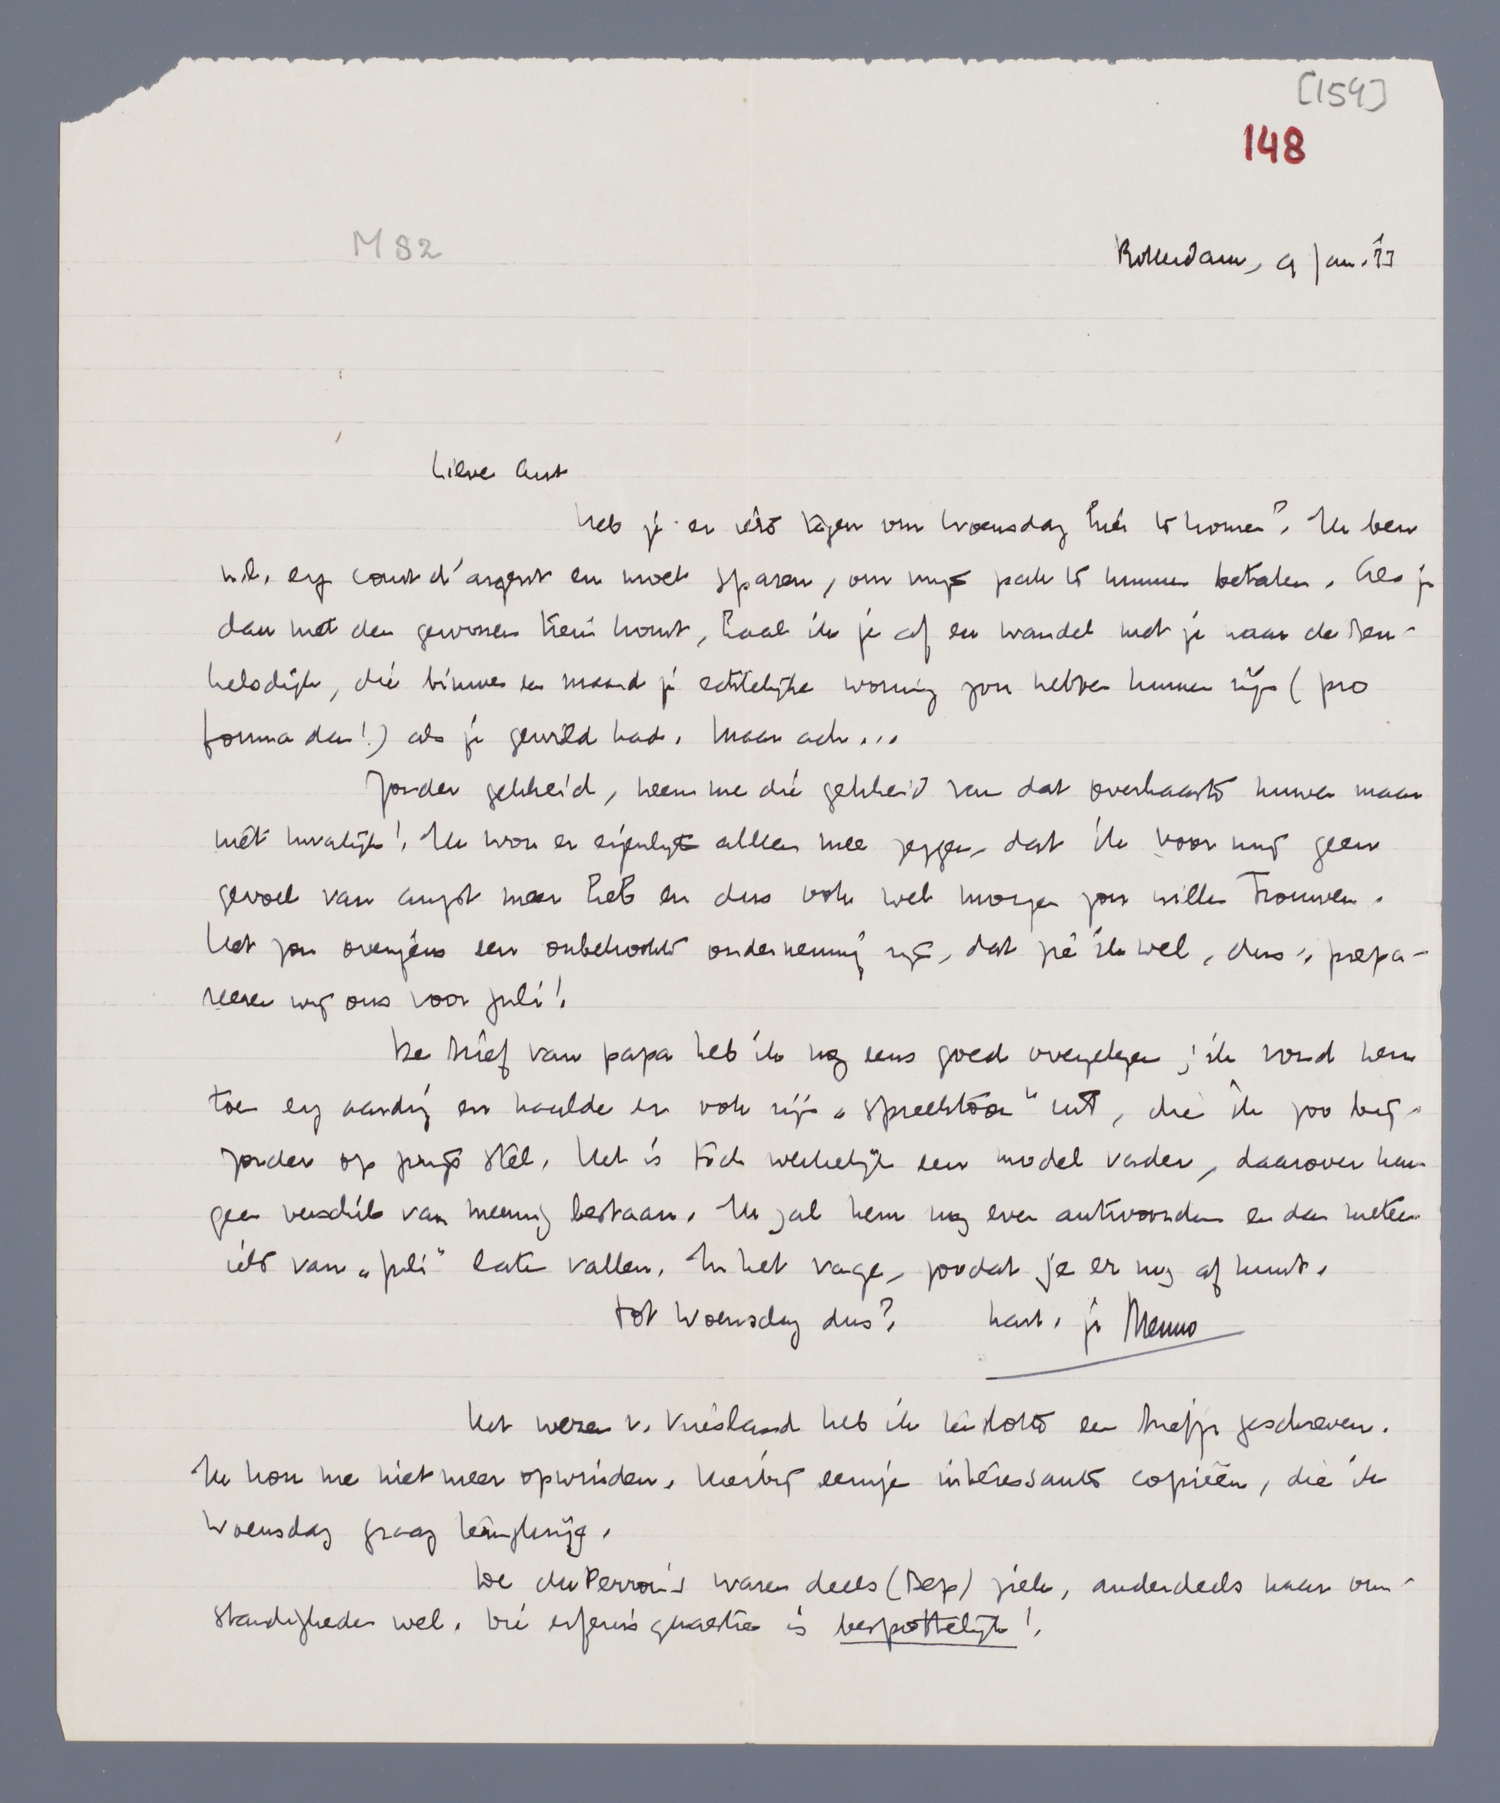 [154]
148
M 82
Rotterdam, 9 Jan. '33
Lieve Ant
Heb je er iets tegen om Woensdag hier te komen? Ik ben
n.l. erg court d'argent en moet sparen, om mijn pak te kunnen betalen. Als je
dan met den gewonen trein komt, haal ik je af en wandel met je naar de Heu-
kelsdijk, die binnen een maand je echtelijke woning zou hebben kunnen zijn (pro
forma dan!) als je gewild had. Maar ach...
Zonder gekheid, neem me die gekheid van dat overhaaste huwen maar
niet kwalijk! Ik wou er eigenlijk alleen mee zeggen, dat ik voor mij geen
gevoel van angst meer heb en dus ook wel morgen zou willen trouwen.
Het zou overigens een onbekookte onderneming zijn, dat zie ik wel, dus: prepa-
reeren wij ons voor Juli!
De brief van papa heb ik nog eens goed overgelezen; ik vond hem
toen erg aardig en haalde er ook zijn „spreektoon" uit, die ik zoo bij-
zonder op prijs stel. Het is toch werkelijk een model vader, daarover kan
geen verschil van meening bestaan. Ik zal hem nog even antwoorden en dan meteen
iets van „Juli" laten vallen. In het vage, zoodat je er nog af kunt.
Tot Woensdag dus? hart. je Menno
Het wezen v. Vriesland heb ik tenslotte een briefje geschreven.
Ik kon me niet meer opwinden. Hierbij eenige interessante copieën, die ik
Woensdag graag terugkrijg.
De du Perron's waren deels (Bep) ziek, anderdeels naar om-
standigheden wel. Die erfenisquaestie is bespottelijk!